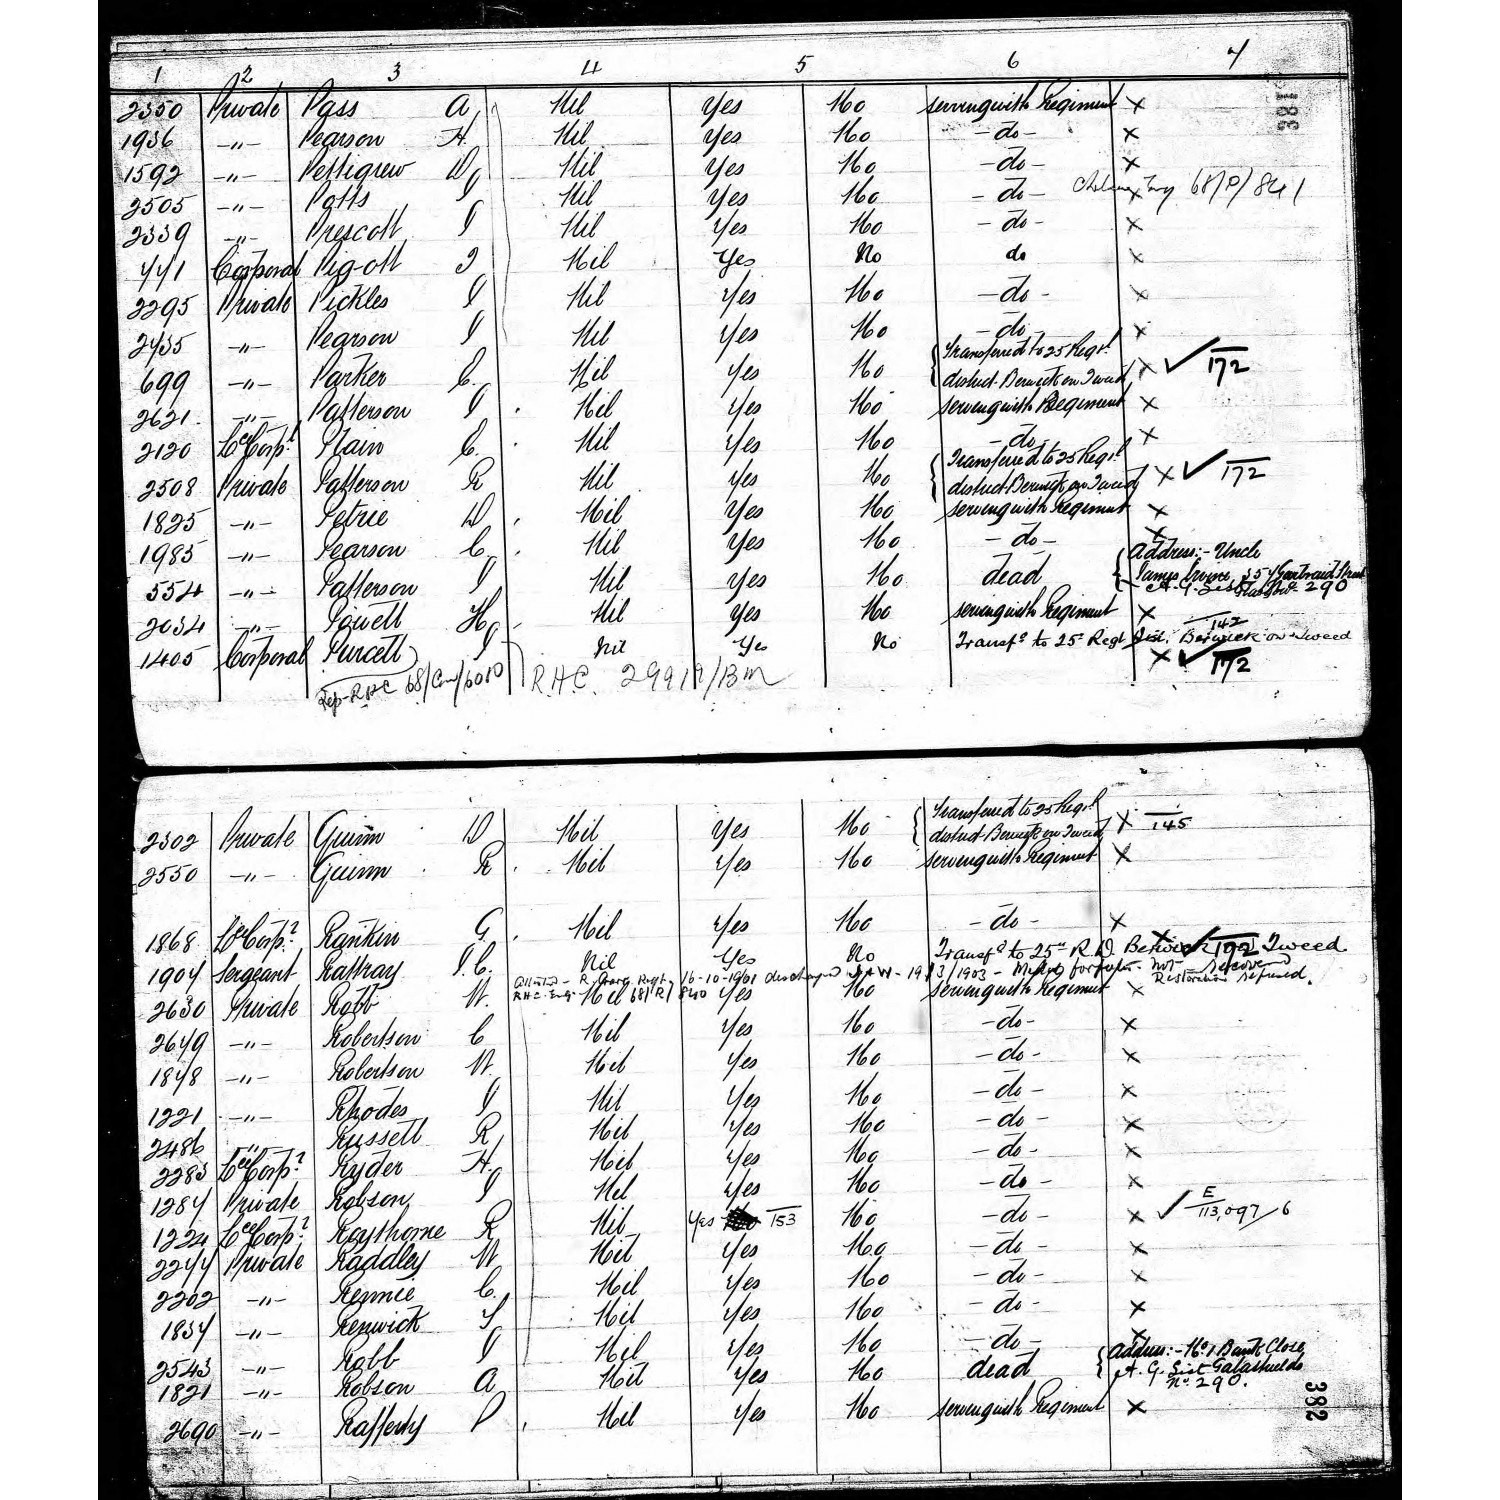 1 2 3 4 5 6 7
381
2350 Private Pass A Nil Yes No serving with Regiment x
1936 -"- Pearson H Nil Yes No -do- x
1592 -"- Pettigrew D Nil Yes No -do- x
2505 -"- Potts J Nil Yes No -do- x 68/P/841
2339 -"- Prescott J Nil Yes No -do- x
441 Corporal Pigott J Nil Yes No do x
2295 Private Pickles J Nil Yes No -do- x
2435 -"- Pearson J Nil Yes No -do- x
699 -"- Parker C. Nil Yes No Transferred to 25 Regtl district Berwick on Tweed x ✓ 172
2621. -"- Patterson J Nil Yes No serving with Regiment x
2120 Lce Corpl Plain C. Nil Yes No -do- x
2508 Private Patterson R Nil Yes No Transferred to 25 Regtl district Berwick on Tweed x ✓ 172
1825 -"- Petrie D Nil Yes No serving with Regiment x
1985 -"- Pearson C. Nil Yes No -do- x
554 -"- Patterson J Nil Yes No dead Address:- Uncle James Irvine 557 Street A.G. List No 290
2034 -"- Powell H Nil Yes No serving with Regiment x
1405 Corporal Purcell J Nil Yes No Transfd to 25 Regt Dist. Berwick on Tweed 142 x ✓ 172
R.H.C 68/Gen/6010 R.H.C. 29919/BM
2302 Private Guinn D Nil Yes No Transferred to 25 Regtl district Berwick on Tweed x 145
2550 -"- Guinn R Nil Yes No serving with Regiment x
1868 Lce Corpl Rankin G. Nil Yes No -do- x
1904 Sergeant Rattray J.C. Nil Yes No Transfd to 25th R.D. Berwick on Tweed x ✓ 192
16-10-1901 discharged 1903 - forfeiture not recovered Restoration refused.
R.H.C. 68/R/840
2630 Private Robb W. Nil Yes No serving with Regiment x
2649 -"- Robertson C Nil Yes No -do- x
1848 -"- Robertson W. Nil Yes No -do- x
1221 -"- Rhodes J Nil Yes No -do- x
2486 -"- Russell R Nil Yes No -do- x
2283 Lce Corpl Ryder H. Nil Yes No -do- x
1284 Private Robson J Nil Yes No -do- x
1224 Lce Corpl Roythorne R Nil Yes 153 No -do- x ✓ E/113,097/6
2244 Private Raddley W Nil Yes No -do- x
2202 -"- Rennie C. Nil Yes No -do- x
1834 -"- Renwick T Nil Yes No -do- x
2543 -"- Robb J Nil Yes No -do- x
1821 -"- Robson A Nil Yes No dead Address:- No 1 Bank Close, Galashields A.G. List No. 290.
2690 -"- Rafferty P Nil Yes No serving with Regiment x
382